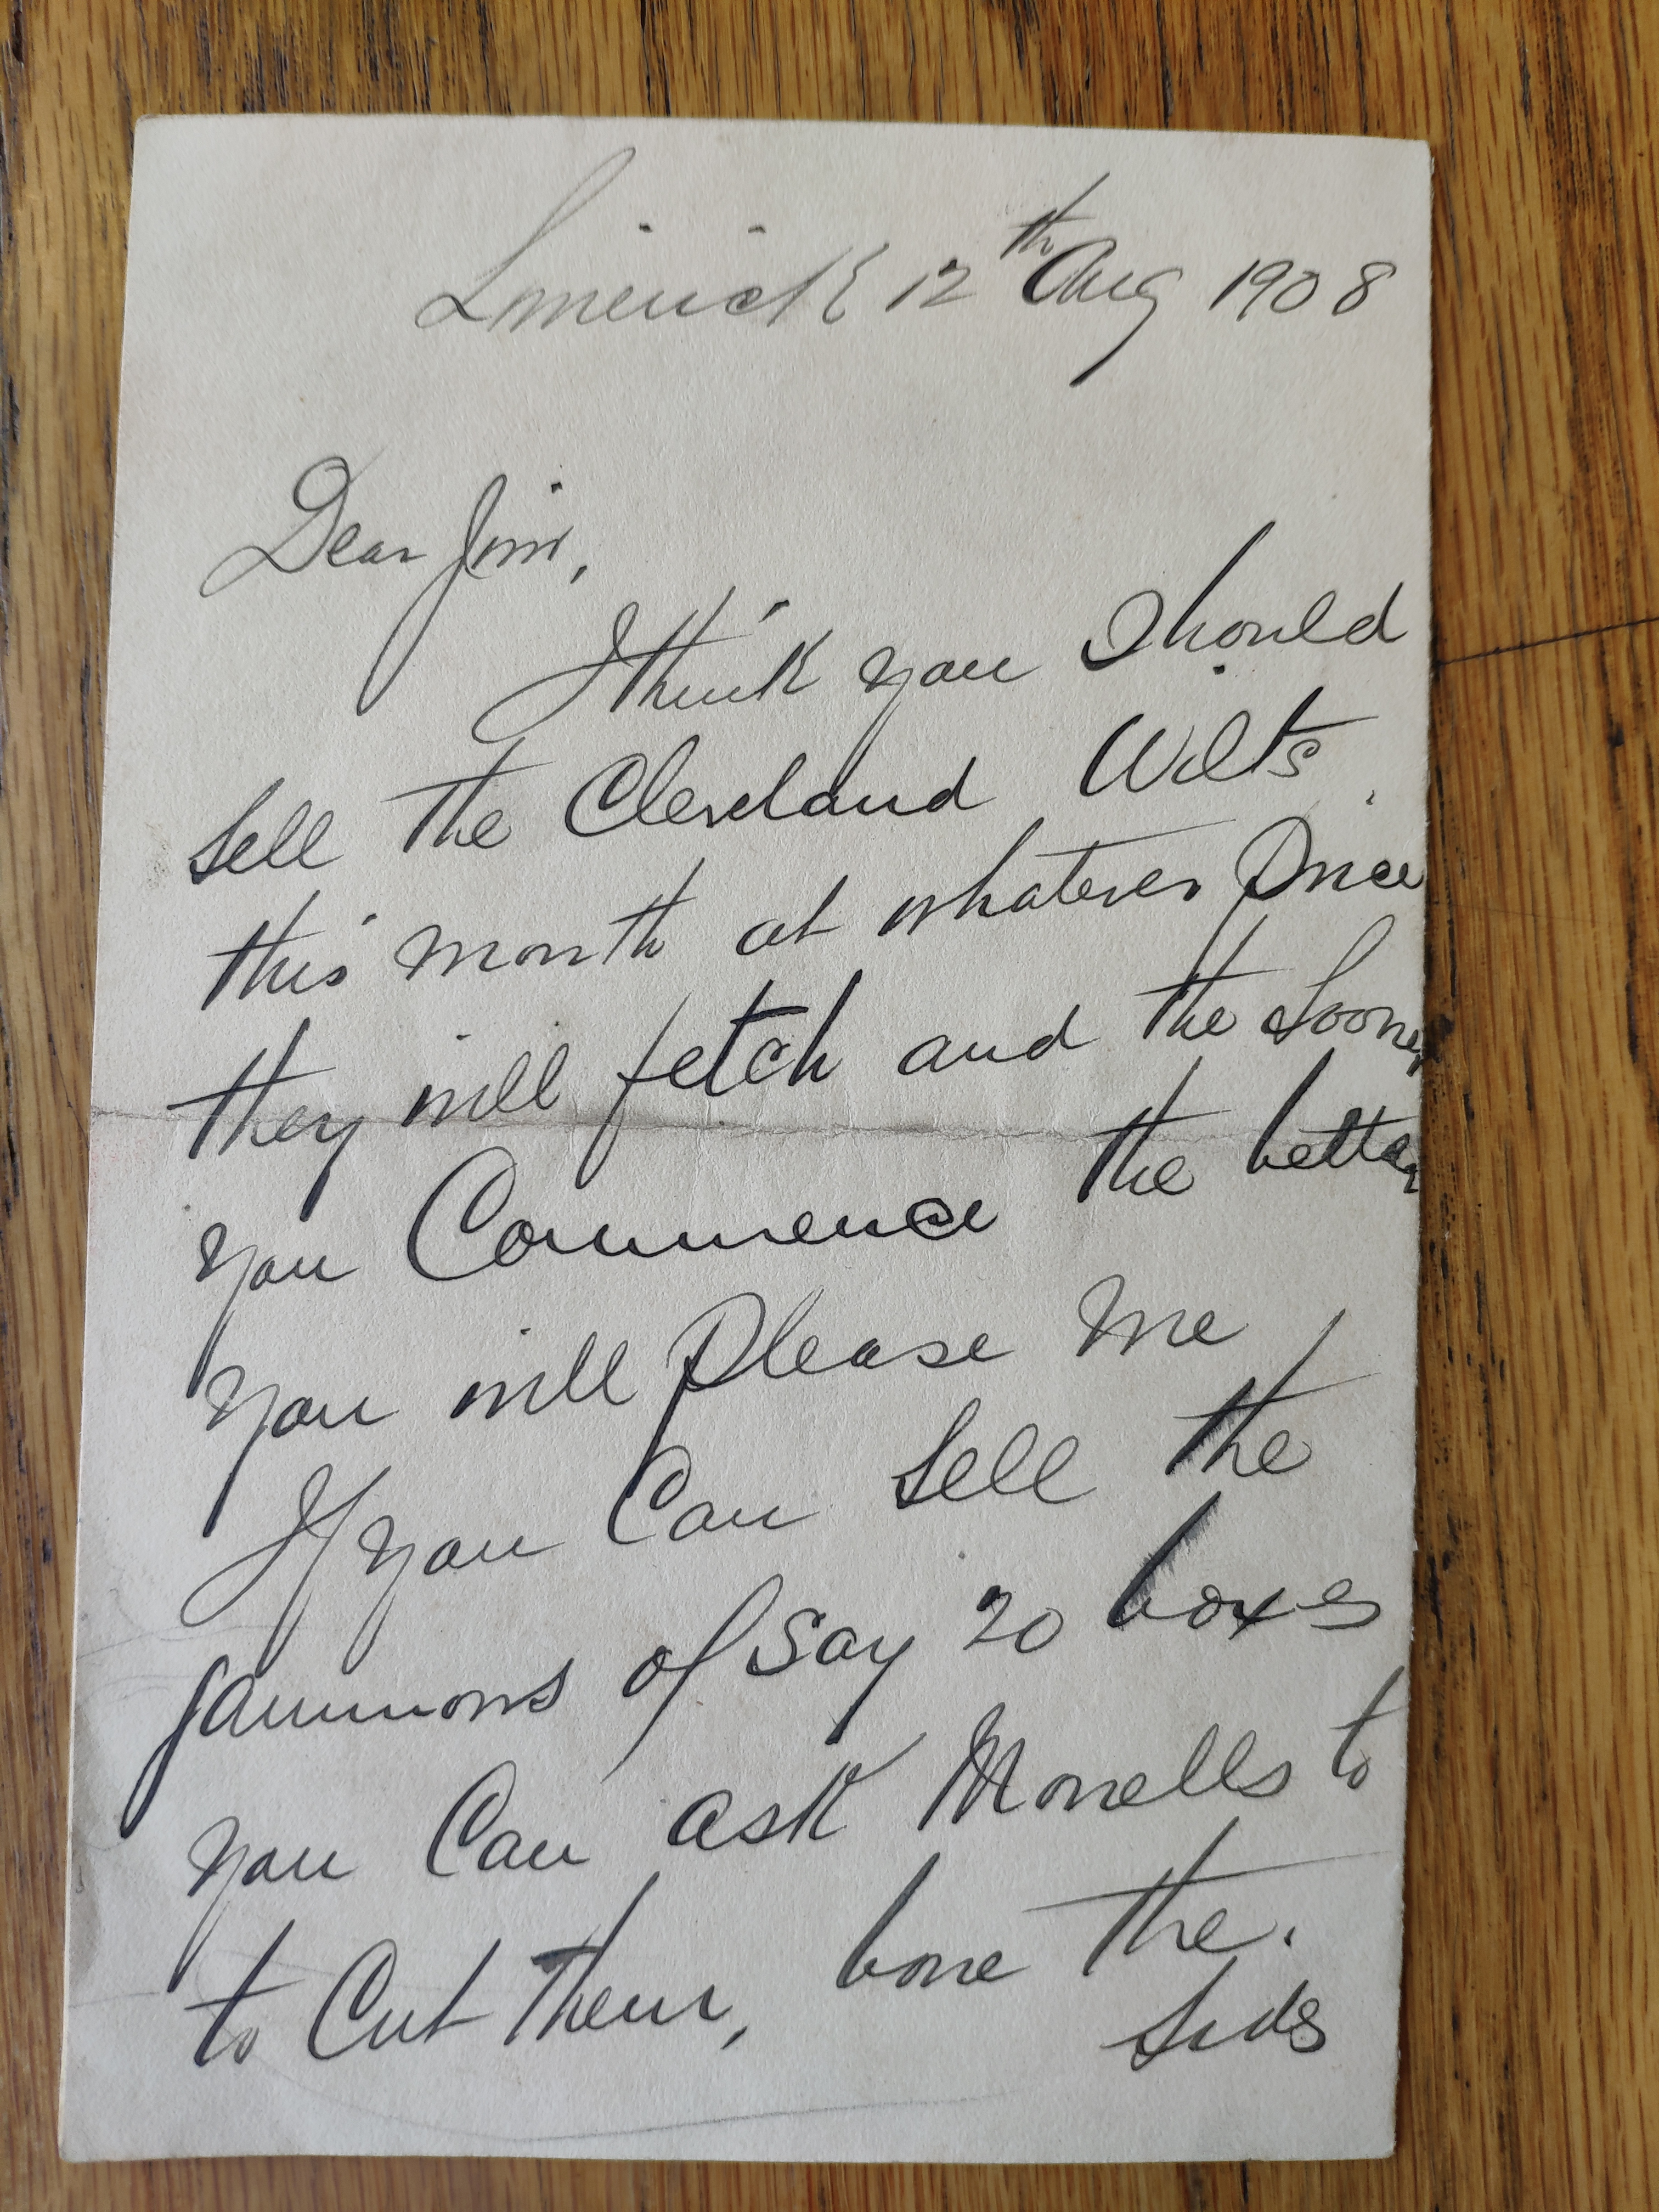 Limerick 12th Aug 1908
Dear Jim,
I think you should
sell the Cleveland Wilts
this month at whatever Price
they will fetch and the Sooner
you Commence the better
you will Please me
If you Can sell the
gammons of say 20 boxes
you Can ask Morrells to
to Cut them, bone the.
sides